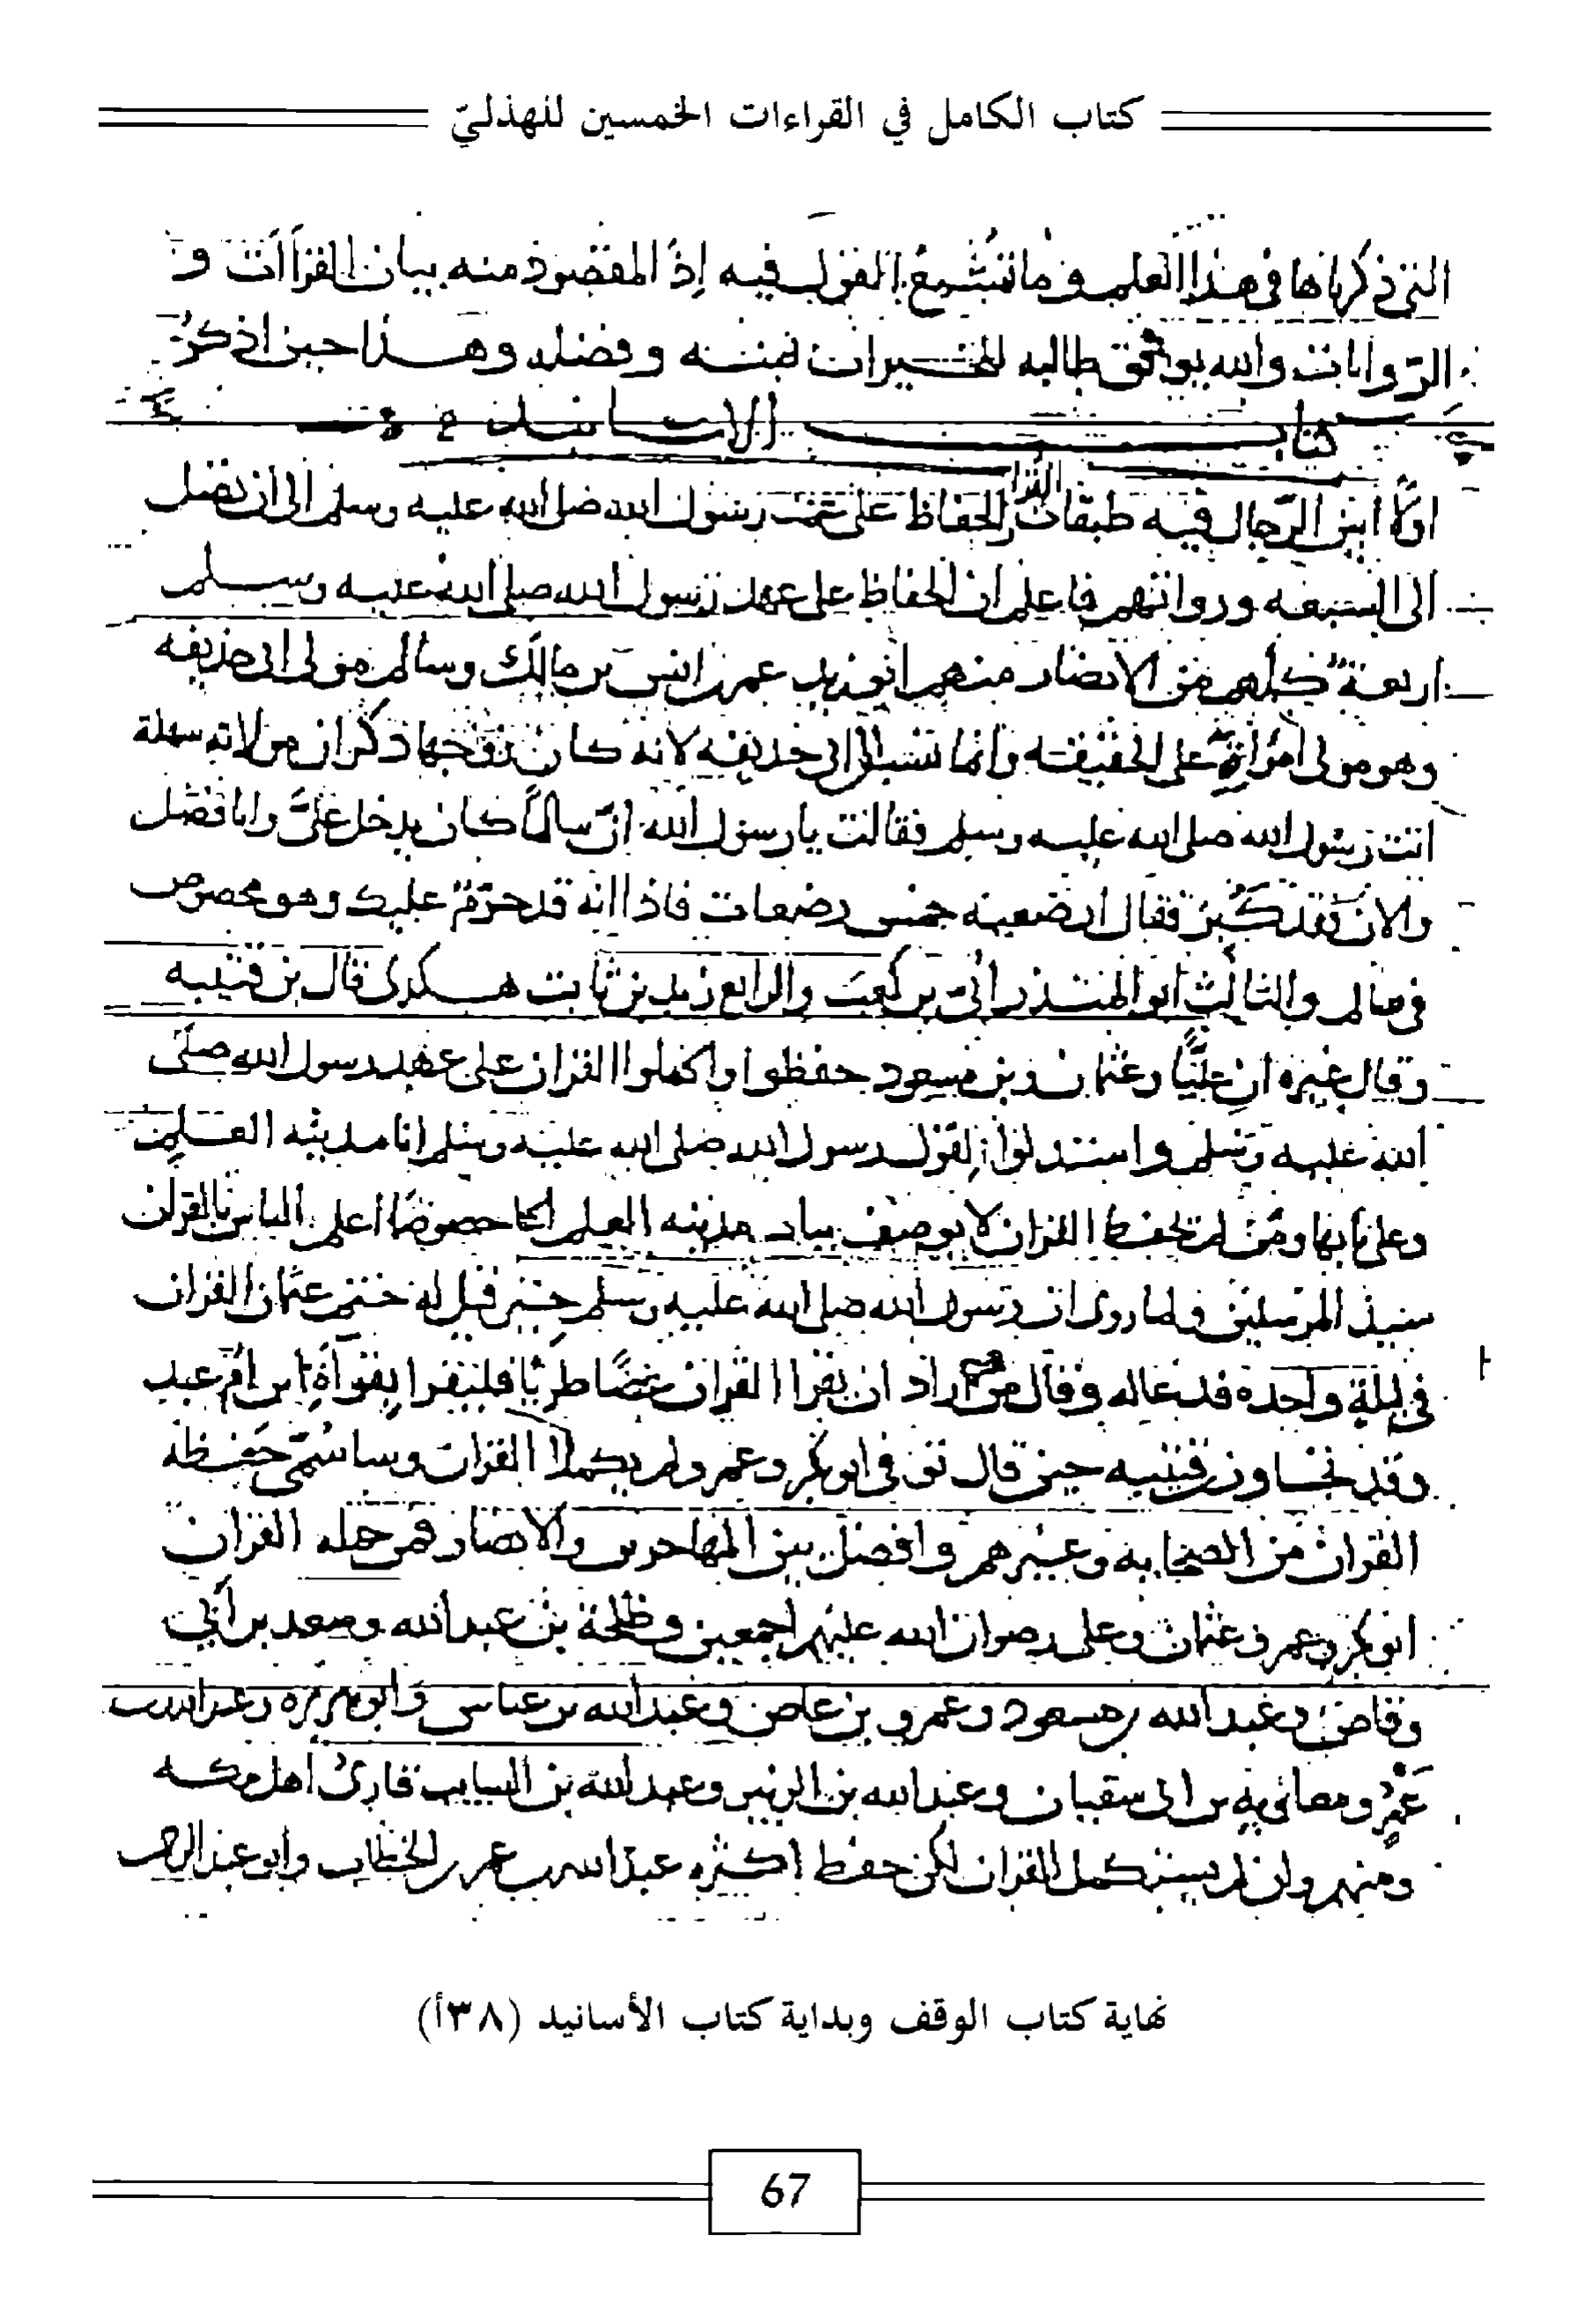 كتاب الكامل في القراءات الخمسين للهذليّ
التي ذكرناها في هذا العلم وما نتشبع القول فيه إذ المقصود منه بيان القراآت و
الروايات والله يوفق طالبه للخيرات بمنه وفضله وهذا حين اذكر
كتاب الاسانيد
اولا ابين الرجال فيه طبقات القرا الحفاظ على عهد رسول الله صلى الله عليه وسلم الى ان نصل
الى السبعه ورواتهم فاعلم ان الحفاظ على عهد رسول الله صلى الله عليه وسلم
اربعة كلهم من الانصار منهم ابو زيد عم انس بن مالك وسالم مولى ابى حذيفه
وهو مولى امرأته على الحقيقه وانما نسب الى ابى حذيفه لانه كان زوجها سهلة
اتت رسول الله صلى الله عليه وسلم فقالت يا رسول الله ان سالما كان يدخل علىّ وانا فضل
والان فقد كبر فقال ارضعيه خمس رضعات فاذا انه قد حرم عليك وهو مخصوص
فى سالم والثالث ابو المنذر أبىّ بن كعب والرابع زيد بن ثابت هكذى قال بن قتيبه
وقال غيره ان عليّا وعثمان وبن مسعود حفظوا واكملوا القران على عهد رسول الله صلّى
الله عليه وسلم واستدلوا بقول رسول الله صلى الله عليه وسلم انا مدينه العلم
وعلى بابها ومن لم يحفظ القران لا يوصف بباب مدينه العلم خصوصا اعلم الناس بالقران
سيد المرسلين ولما روى ان رسول الله صلى الله عليه وسلم حين قيل له ختم عثمان القران
فى ليلة واحده فدعاله وقال من اراد ان يقرا القران غضّا طريّا فليقرا بقرآة ابن أم عبد
وقد تجاوز قتيبه حين قال توفى ابو بكر وعمر ولم يكملا القران وساسمّى حفظه
القران من الصحابه وغيرهم وافضل بين المهاجرين والانصار فمن حمله القران
ابو بكر وعمر وعثمان وعلى رضوان الله عليهم اجمعين وطلحة بن عبد الله وسعد بن أبى
وقاص وعبد الله بن مسعود وعمرو بن عاص وعبد الله بن عباس وابو هريره وعبد الله بن
عمرو ومعاويه بن ابى سفيان وعبد الله بن الزبير وعبد الله بن السايب قارئ اهل مكه
ومنهم وان لم يستكمل القران لكن حفظ اكثره عبد الله بن عمر بن الخطاب وابو عبد الرحمن
نهاية كتاب الوقف وبداية كتاب الأسانيد (٣٨أ)
67